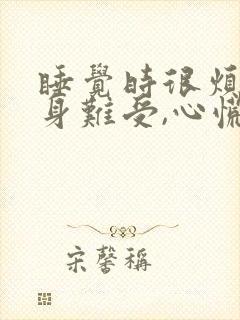 睡覺時很煩
身難受,心慌
宋馨稱